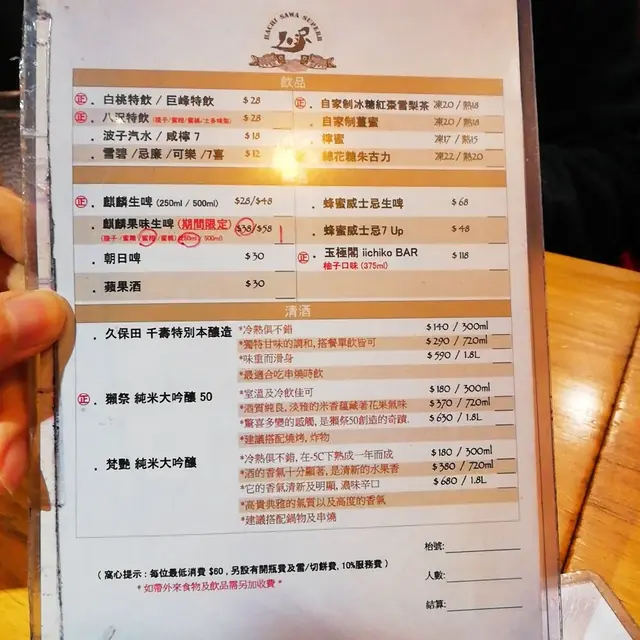 HACHI SAWA SUPERB
飲品
正 . 白桃特飲 / 巨峰特飲 $28
正 . 自家制冰糖紅棗雪梨茶 凍20 / 熱18
正 . 八沢特飲 $28
. 自家制薑蜜 凍20 / 熱18
. 波子汽水 / 咸檸7 $18
. 檸蜜 凍17 / 熱15
. 雪碧 / 忌廉 / 可樂 / 7喜 $12
. 棉花糖朱古力 凍22 / 熱20
正 . 麒麟生啤 (250ml / 500ml) $28/$48
. 蜂蜜威士忌生啤 $68
. 麒麟果味生啤 (期間限定) $38/$58
. 蜂蜜威士忌7 Up $48
. 朝日啤 $30
正 . 玉極閣 iichiko BAR $118
柚子口味 (375ml)
. 蘋果酒 $30
清酒
. 久保田 千壽特別本釀造
*冷熱俱不錯 $140 / 300ml
*獨特甘味的調和, 搭餐單飲皆可 $290 / 720ml
*味重而滑身 $590 / 1.8L
*最適合吃串燒時飲
正 . 獺祭 純米大吟釀 50
*室溫及冷飲佳可 $180 / 300ml
*酒質純良, 淡雅的米香蘊藏著花果氣味 $370 / 720ml
*驚喜多變的感觸, 是獺祭50創造的奇蹟. $630 / 1.8L
*建議搭配燒烤, 炸物
. 梵艷 純米大吟釀
*冷熱俱不錯, 在-5C下熟成一年而成 $180 / 300ml
*酒的香氣十分顯著, 是清新的水果香 $380 / 720ml
*它的香氣清新及明顯, 濃味辛口 $680 / 1.8L
*高貴典雅的氣質以及高度的香氣
*建議搭配鍋物及串燒
( 窩心提示 : 每位最低消費 $60 , 另設有開瓶費及雪/切餅費, 10%服務費 )
* 如帶外來食物及飲品需另加收費 *
枱號:
人數:
結算: